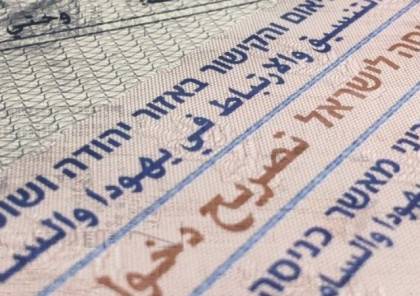 وحتي
יאום והקישור באזור יהודה ושומ
لتنسيق والارتباط في يهودا والسا
סה לישראל تصريح دخو
ני מאשר כניסה
هودا والسا